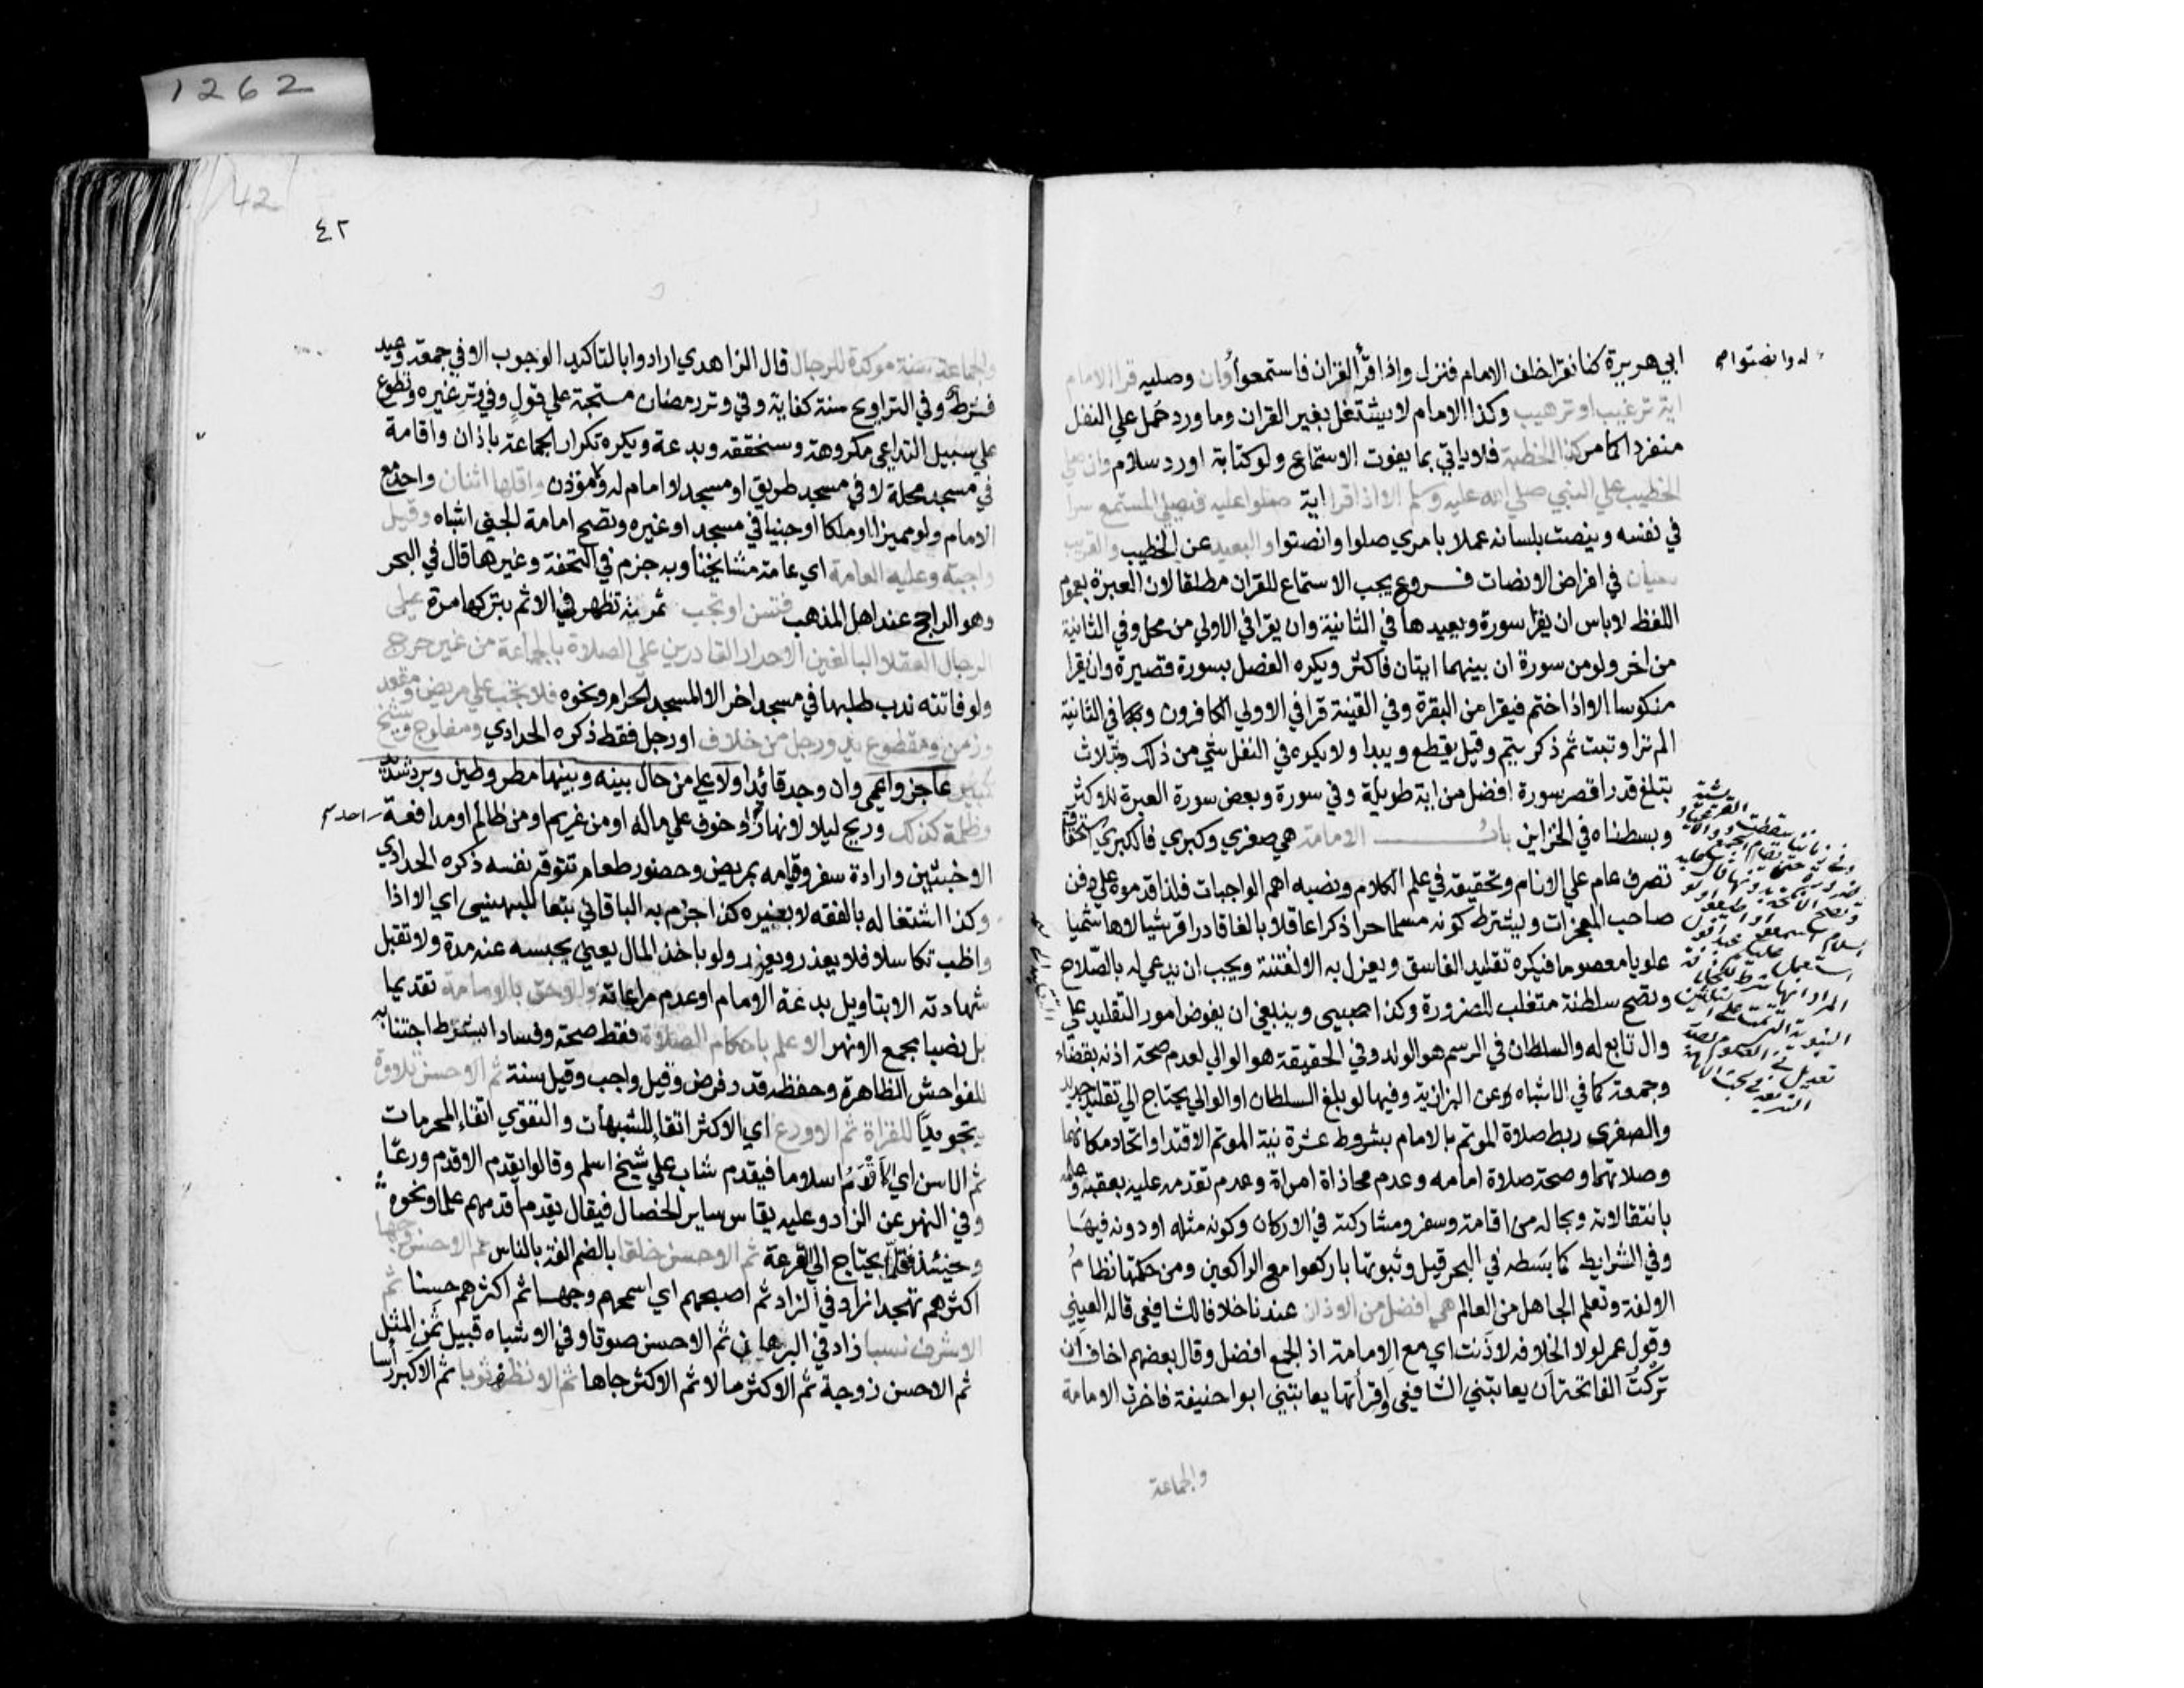 1262
42
٤٢
له وانصتوا صح
ابي هريرة كنا نقرا خلف الامام فنزل واذا قرأ القران فاستمعوا وان وصليه قرا الامام
اية ترغيب او ترهيب وكذا الامام لا يشتغل بغير القران وما ورد حُمل علي النفل
منفردا كما مر كذا الخطبة فلا ياتي بما يفوت الاستماع ولو كتابة او رد سلام وان صلي
الخطيب علي النبي صلي الله عليه وسلم الا اذا اقرا اية صلوا عليه فيصلي المستمع سرا
في نفسه وينصت بلسانه عملا بامري صلوا وانصتوا والبعيد عن الخطيب والقريب
سيان في افتراض الانصات فـروع يجب الاستماع للقران مطلقا لان العبرة بعموم
اللفظ لا باس ان يقرا سورة ويعيدها في الثانية وان يقرا في الاولي من محل وفي الثانية
من اخر ولو من سورة ان بينهما ايتان فاكثر ويكره الفصل بسورة قصيرة وان يقرا
منكوسا الا اذا ختم فيقرا من البقرة وفي القنية قرا في الاولي الكافرون وفي الثانية
الم ترا وتبت ثم ذكر يتم وقيل يقطع ويبدا ولا يكره في النفل شي من ذلك وبثلاث
تبلغ قدر اقصر سورة افضل من اية طويلة وفي سورة وبعض سورة العبرة للاكثر
وبسطناه في الخزاين بابُ الامامة هي صغري وكبري فالكبري استحقاق
تصرف عام علي الانام وتحقيقه في علم الكلام ونصبه اهم الواجبات فلذا قدموه علي دفن
صاحب المعجزات ويشترط كونه مسلما حرا ذكرا عاقلا بالغا قادرا قرشيا لا هاشميا
علويا معصوما فيكره تقليد الفاسق ويعزل به الا لفتنة ويجب ان يدعي له بالصّلاح
وتصح سلطنة متغلب للضرورة وكذا صبيي وينبغي ان يفوض امور التقليد علي
وال تابع له والسلطان في الرسم هو الولد وفي الحقيقة هو الوالي لعدم صحة اذنه بقضاء
وجمعة كما في الاشباه عن البزازية وفيها لو بلغ السلطان او الوالي يحتاج الي تقليد جديد
والصغري ربط صلاة الموتم بالامام بشروط عشرة نية الموتم الاقتدا واتحاد مكانهما
وصلاتهما وصحة صلاة امامه وعدم محاذاة امراة وعدم تقدمه عليه بعقبه وعلمه
بانتقالاته وبحاله من اقامة وسفر ومشاركته في الاركان وكونه مثله او دونه فيهَا
وفي الشرايط كما بَسَطه في البحر قيل وثبوتها باركعوا مع الراكعين ومن حكمتها نظامُ
الالفة وتعلم الجاهل من العالم هي افضل من الاذان عندنا خلافا للشافعي قاله العيني
وقول عمر لولا الخلافه لاذنت اي مع الامامة اذ الجمع افضل وقال بعضهم اخاف ان
تركتُ الفاتحة ان يعاتبني الشافعي او قرأتها يعاتبني ابوا حنيفة فاخرت الامامة
والجماعة
والجماعة سنة موكدة للرجال قال الزاهدي ارادوا بالتاكيد الوجوب الا في جمعة وعيد
فشرط وفي التراويح سنة كفاية وفي وتر رمضان مستحبة علي قول وفي وتر غيره وتطوع
علي سبيل التداعي مكروهة وسنحققه وبدعة ويكره تكرار الجماعة باذان واقامة
في مسجد محلة لا في مسجد طريق او مسجد لا امام له ولا مؤذن واقلها اثنان واحد مع
الامام ولو مميزا او ملكا او جنيا في مسجد او غيره وتصح امامة الجني اشباه وقيل
واجبة وعليه العامة اي عامة مشايخنا وبه جزم في التحفة وغيرها قال في البحر
وهو الراجح عند اهل المذهب فتسن او تجب ثمرته تظهر في الاثم بتركها مرة علي
الرجال العقلا البالغين الاحرار القادرين علي الصلاة بالجماعة من غير حرج
ولو فاتته ندب طلبها في مسجد اخر الا المسجد الحرام ونحوه فلا تجب علي مريض ومقعد
وزمن ومقطوع يد ورجل من خلاف او رجل فقط ذكره الحدادي ومفلوج وشيخ
كبير عاجز واعمي وان وجد قائدا ولا علي من حال بينه وبينها مطر وطين وبرد شديد
وظلمة كذلك وريح ليلا لا نهارا او خوف علي ماله او من غريم او من ظالم او مدافعة احد
الاخبثين وارادة سفر وقيامه بمريض وحضور طعام تتوقه نفسه ذكره الحدادي
وكذا اشتغاله بالفقه لا بغيره كذا جزم به الباقاني تبعا للبهنسي اي الا اذا
واظب تكاسلا فلا يعذر ويعزر ولو باخذ المال يعني بحبسه عنه مدة ولا تقبل
شهادته الا بتاويل بدعة الامام او عدم مراعاته والاحق بالامامة تقديما
بل نصبا مجمع الانهر الاعلم باحكام الصلاة فقط صحة وفسادا بشرط اجتنابه
للفواحش الظاهرة وحفظه قدر فرض وقيل واجب وقيل سنة ثم الاحسن تلاوة
وتجويدا للقراة ثم الاورع اي الاكثر اتقاء للشبهات والتقوي اتقاء المحرمات
ثم الاسن اي الاقدمُ اسلاما فيقدم شاب علي شيخ اسلم وقالوا يقدم الاقدم ورعًا
وفي النهر عن الزاد وعليه يقاس ساير الخصال فيقال يقدم اقدمهم علما ونحوه
وحينئذ فقلما يحتاج الي القرعة ثم الاحسن خلقا بالضم الفة بالناس ثم الاحسن وجها
اكثرهم تهجدا زاد في الزاد ثم اصبحهم اي اسمحهم وجهـا ثم اكثرهم حسنا ثم
الاشرف نسبا زاد في البرهان ثم الاحسن صوتا وفي الاشباه قبيل ثمن المثل
ثم الاحسن زوجة ثم الاكثر مالا ثم الاكثر جاها ثم الانظف ثوبا ثم الاكبر راسا